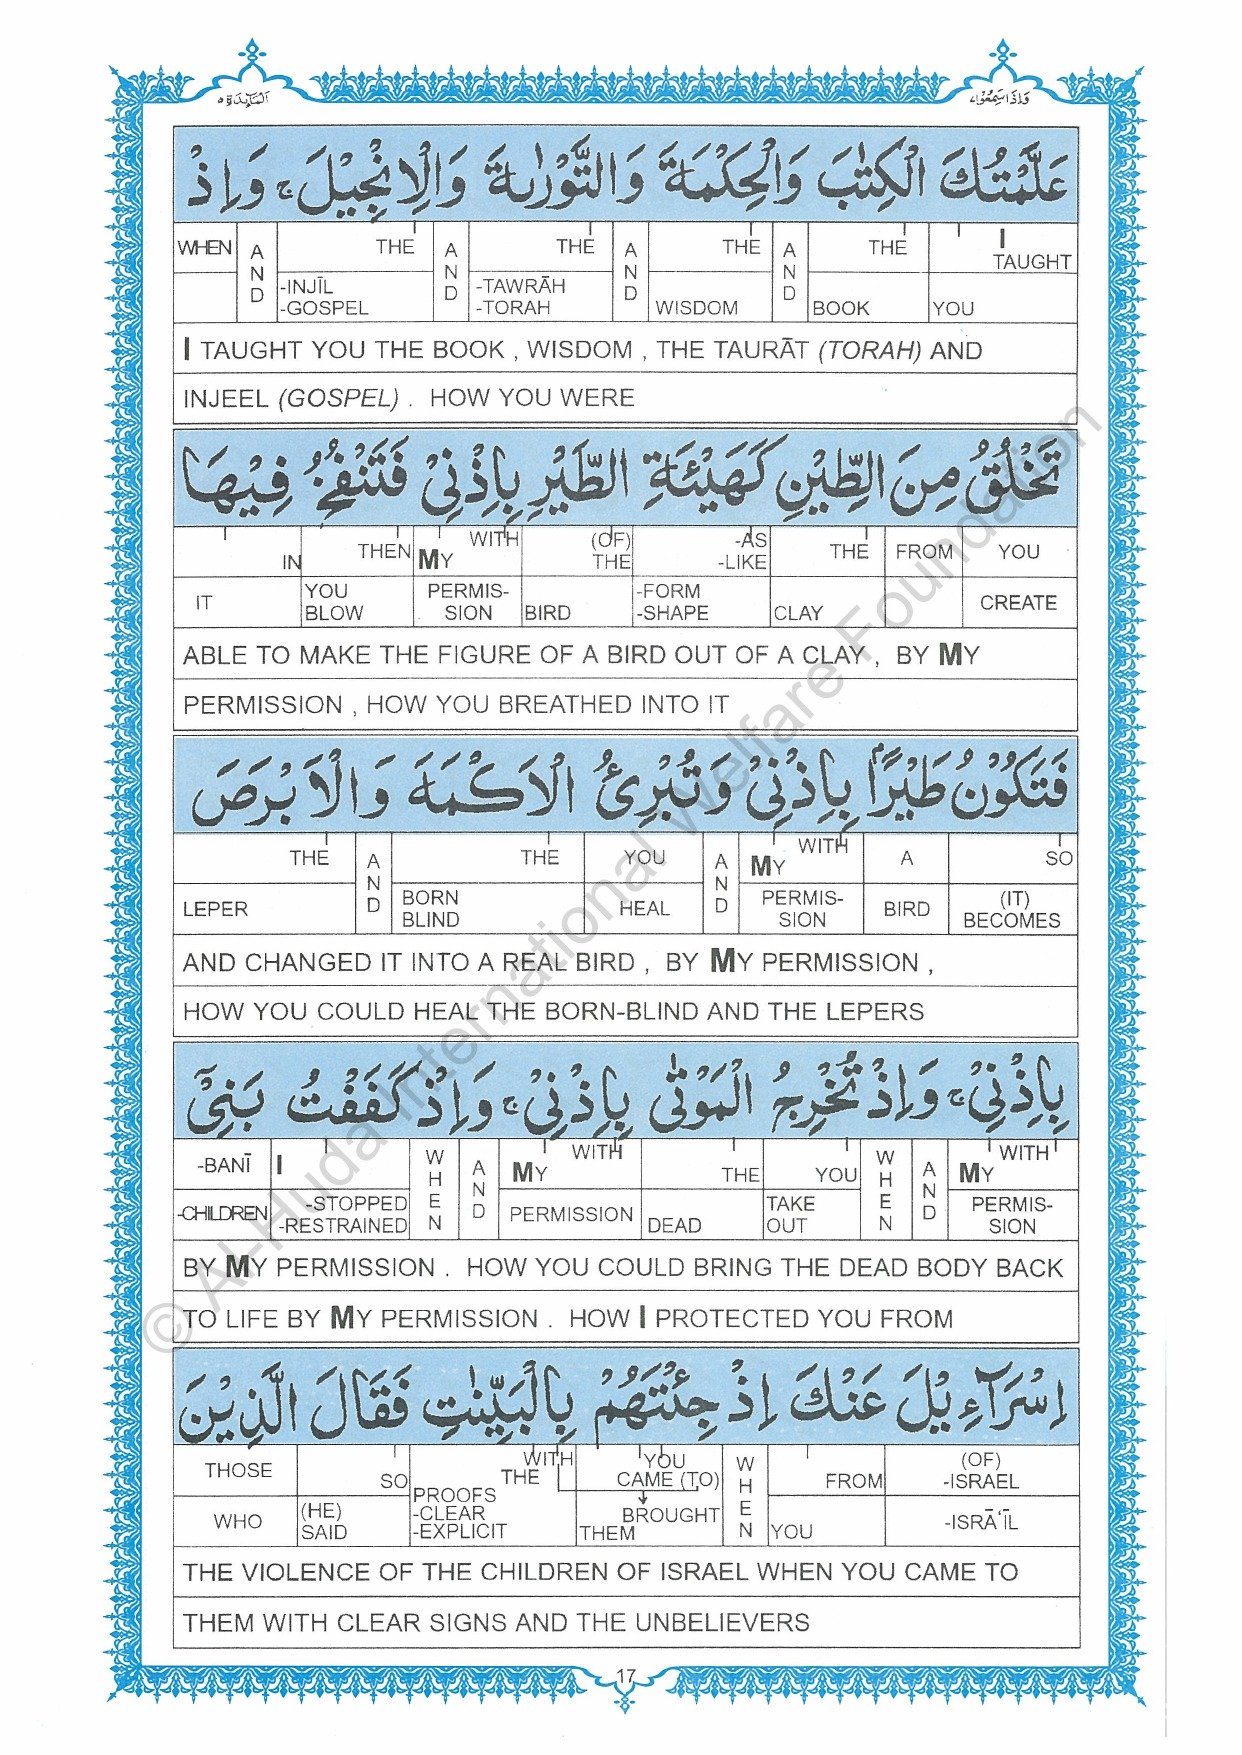 المآئدة ٥
واذاسمعوا ٧
عَلَّمْتُكَ الْكِتٰبَ وَالْحِكْمَةَ وَالتَّوْرٰىةَ وَالْاِنْجِيْلَ ۚ وَاِذْ
WHEN AND THE AND THE AND THE AND THE I TAUGHT
-INJĪL -GOSPEL -TAWRĀH -TORAH WISDOM BOOK YOU
I TAUGHT YOU THE BOOK , WISDOM , THE TAURĀT (TORAH) AND
INJEEL (GOPSEL) . HOW YOU WERE
تَخْلُقُ مِنَ الطِّيْنِ كَهَيْئَةِ الطَّيْرِ بِاِذْنِيْ فَتَنْفُخُ فِيْهَا
IN THEN WITH MY (OF) THE -AS -LIKE THE FROM YOU
IT YOU BLOW PERMIS-SION BIRD -FORM -SHAPE CLAY CREATE
ABLE TO MAKE THE FIGURE OF A BIRD OUT OF A CLAY , BY MY
PERMISSION , HOW YOU BREATHED INTO IT
فَتَكُوْنُ طَيْرًۢا بِاِذْنِيْ وَتُبْرِئُ الْاَكْمَهَ وَالْاَبْرَصَ
THE AND THE YOU AND WITH MY A SO
LEPER BORN BLIND HEAL PERMIS-SION BIRD (IT) BECOMES
AND CHANGED IT INTO A REAL BIRD , BY MY PERMISSION ,
HOW YOU COULD HEAL THE BORN-BLIND AND THE LEPERS
بِاِذْنِيْ ۚ وَاِذْ تُخْرِجُ الْمَوْتٰى بِاِذْنِيْ ۚ وَاِذْ كَفَفْتُ بَنِيْٓ
-BANĪ I WHEN AND WITH MY THE YOU WHEN AND WITH MY
-CHILDREN -STOPPED -RESTRAINED PERMISSION DEAD TAKE OUT PERMIS-SION
BY MY PERMISSION . HOW YOU COULD BRING THE DEAD BODY BACK
TO LIFE BY MY PERMISSION . HOW I PROTECTED YOU FROM
اِسْرَآءِيْلَ عَنْكَ اِذْ جِئْتَهُمْ بِالْبَيِّنٰتِ فَقَالَ الَّذِيْنَ
THOSE SO WITH THE YOU CAME (TO) WHEN FROM (OF) -ISRAEL
WHO (HE) SAID PROOFS -CLEAR -EXPLICIT BROUGHT THEM YOU -ISRĀ‘ĪL
THE VIOLENCE OF THE CHILDREN OF ISRAEL WHEN YOU CAME TO
THEM WITH CLEAR SIGNS AND THE UNBELIEVERS
17
© Al-Huda International Welfare Foundation